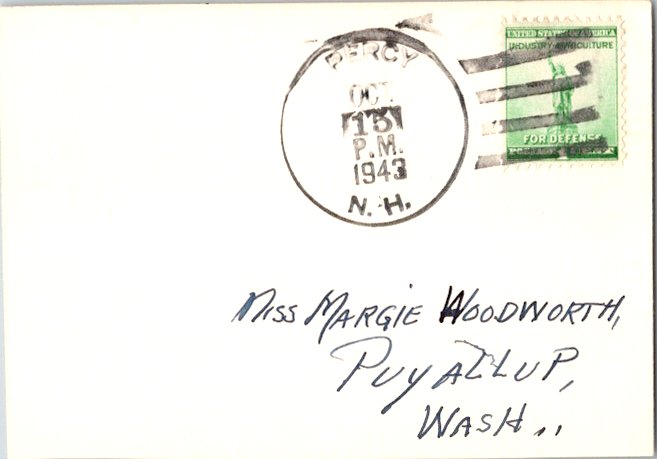 PERCY
OCT
15
P.M.
1943
N. H.
UNITED STATES OF AMERICA
INDUSTRY AGRICULTURE
FOR DEFENSE
Miss Margie Woodworth,
Puyallup,
Wash..